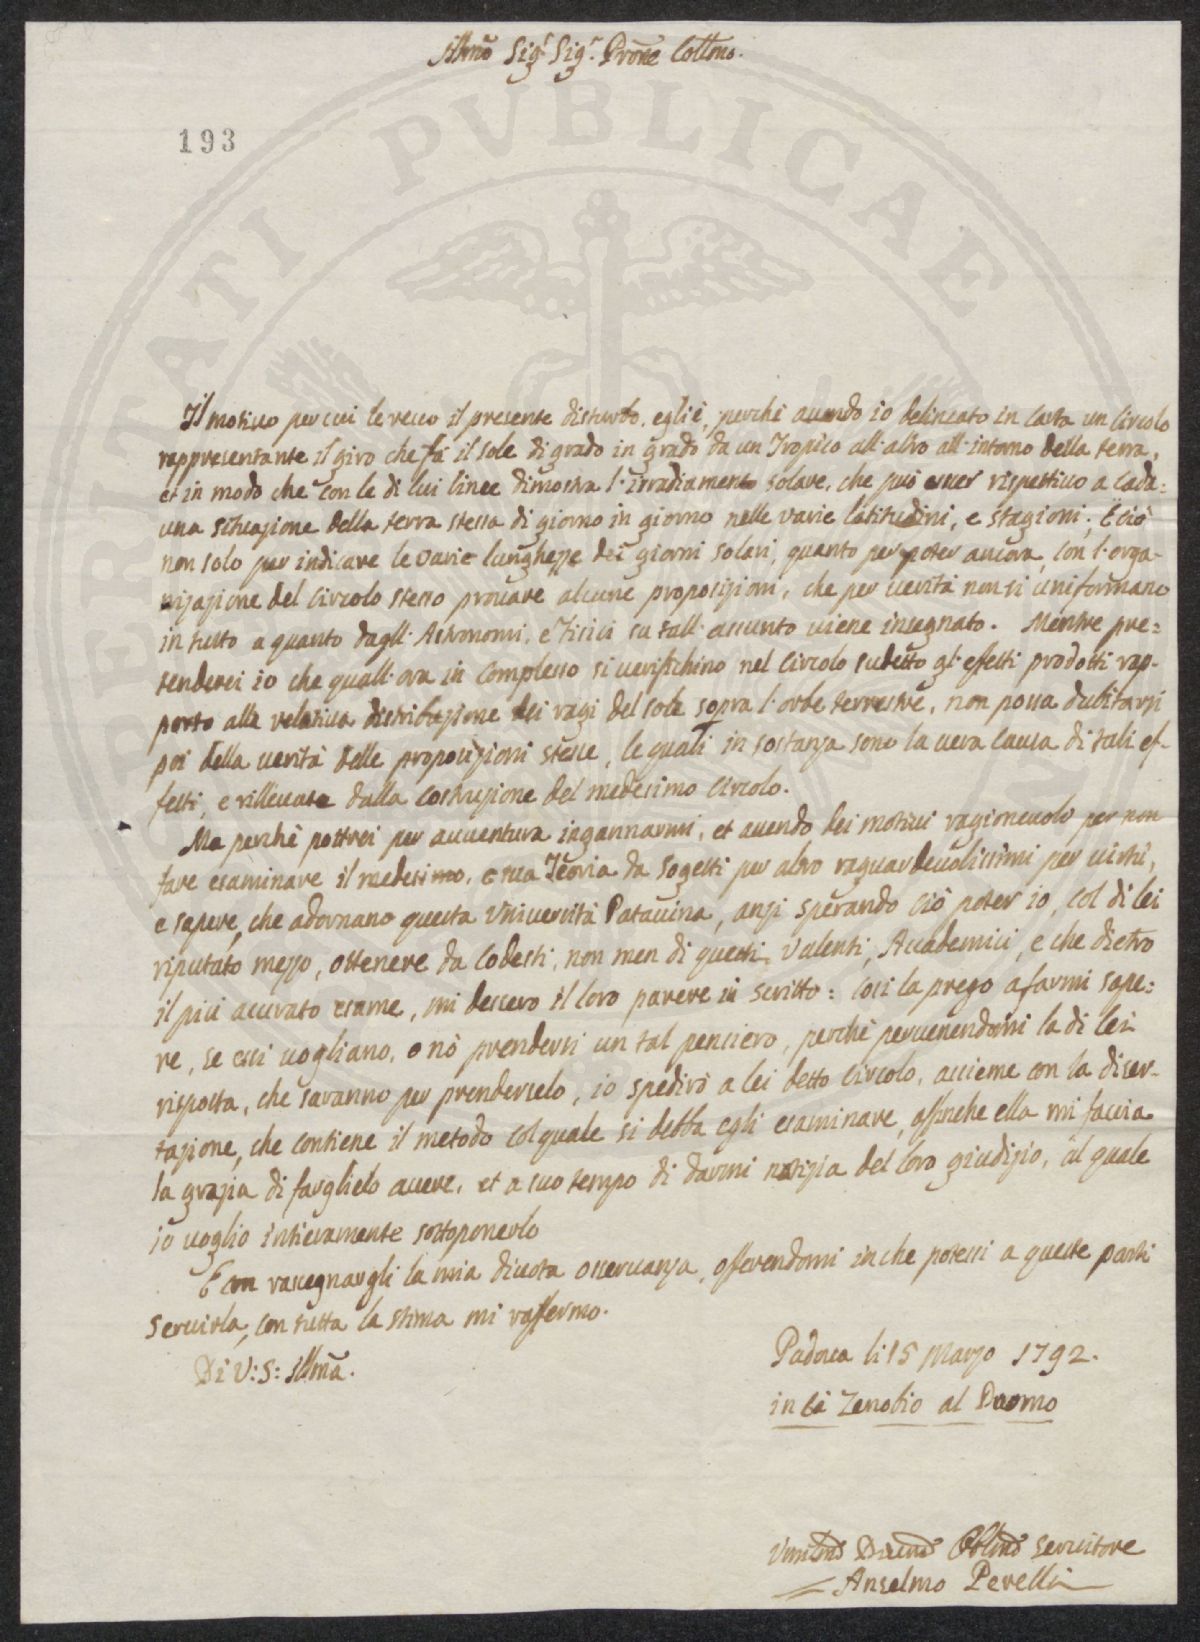 Illmõ Sigr Sigr Prõne Collmo.
193
Il motivo per cui le reco il presente disturbo, egli è, perchè avendo io delineato in carta un Circolo
rappresentante il giro che fà il sole di grado in grado da un Tropico all'altro all'intorno della terra,
et in modo che con le di lui linee dimostra l'irradiamento solare, che può esser rispettivo a cada=
una situazione della terra stessa di giorno in giorno nelle varie latitudini, e stagioni; E ciò
non solo per indicare le varie lunghezze dei giorni solari, quanto per poter ancora, con l'orga-
nizazione del Circolo stesso provare alcune proposizioni, che per verità non si uniformano
in tutto a quanto dagll' Astronomi, e Fisici su tall' assunto viene insegnato. Mentre pre=
tenderei io che quall'ora in complesso si verifichino nel Circolo sudetto gl'effetti prodotti rap-
porto alla relativa distribuzione dei ragi del sole sopra l'orbe terrestre, non possa dubitarsi
poi della verità delle proposizioni stesse, le quali in sostanza sono la vera causa di tali ef-
fetti, e rillevate dalla costruzione del medesimo Circolo.
Ma perchè pottrei per avventura ingannarmi, et avendo dei motivi ragionevolo per non
fare esaminare il medesimo, e sua Teoria da sogetti per altro raguardevolissimi per virtù,
e sapere, che adornano questa Università Patavina, anzi sperando ciò poter io, col di lei
riputato mezzo, ottenere da codesti, non men di questi, Valenti, Accademici, e che dietro
il più accurato esame, mi dessero il loro parere in scritto: Così la prego a farmi sape=
re, se essi vogliano, o nò prendersi un tal pensiero, perchè pervenendomi la di lei
risposta, che saranno per prenderselo, io spedirò a lei detto Circolo, assieme con la disser-
tazione, che contiene il metodo col quale si debba egli esaminare, affinche ella mi faccia
la grazia di farglielo avere, et a suo tempo di darmi notizia del loro giudizio, al quale
io voglio intieramente sottoponerlo
E con rassegnargli la mia divota osservanza, offerendomi in che potessi a queste parti
servirla, con tutta la stima mi raffermo.
Di V: S: Illmã.
Padova li 15 Marzo 1792.
in Cà Zenobio al Duomo
Servitore
Anselmo Perelli
PERITATI PVBLICAE